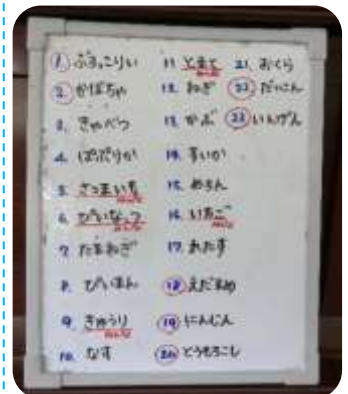 1. ぶろっこりい
2. かぼちゃ
3. きゃべつ
4. ぱぷりか
5. さつまいも
6. ぴいなっつ
7. たまねぎ
8. ぴいまん
9. きゅうり
10. なす
11. とまと
12. ねぎ
13. かぶ
14. すいか
15. めろん
16. いちご
17. れたす
18. えだまめ
19. にんじん
20. とうもろこし
21. おくら
22. だいこん
23. いんげん